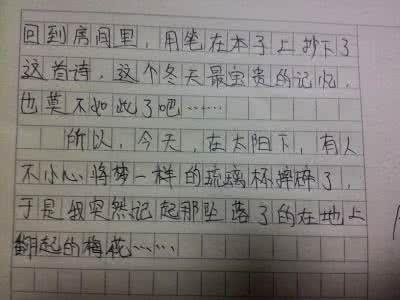 回到房间里，用笔在本子上抄下了
这首诗，这个冬天最宝贵的记忆，
也莫不如此了吧……
所以，今天，在太阳下，有人
不小心将梦一样的琉璃杯摔碎了，
于是我突然记起那坠落了的在地上
翻起的梅花……